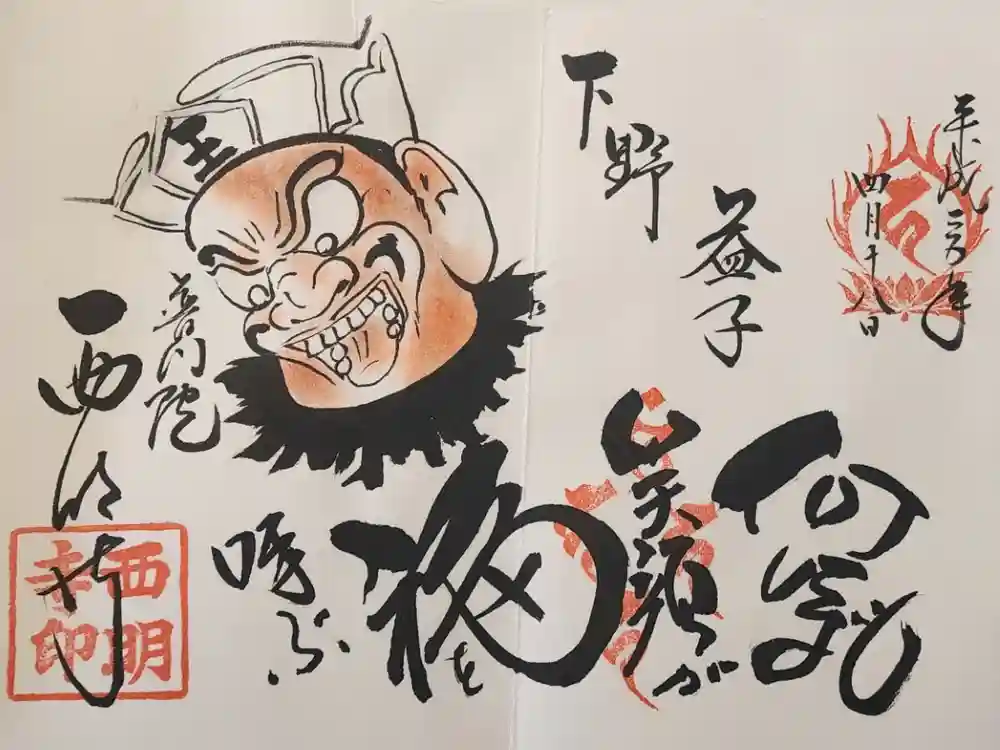 平成
年
四月十八日
下野
益子
何事も
笑顔が
福を
呼ぶ
王
普門院
西明寺
西明
寺印